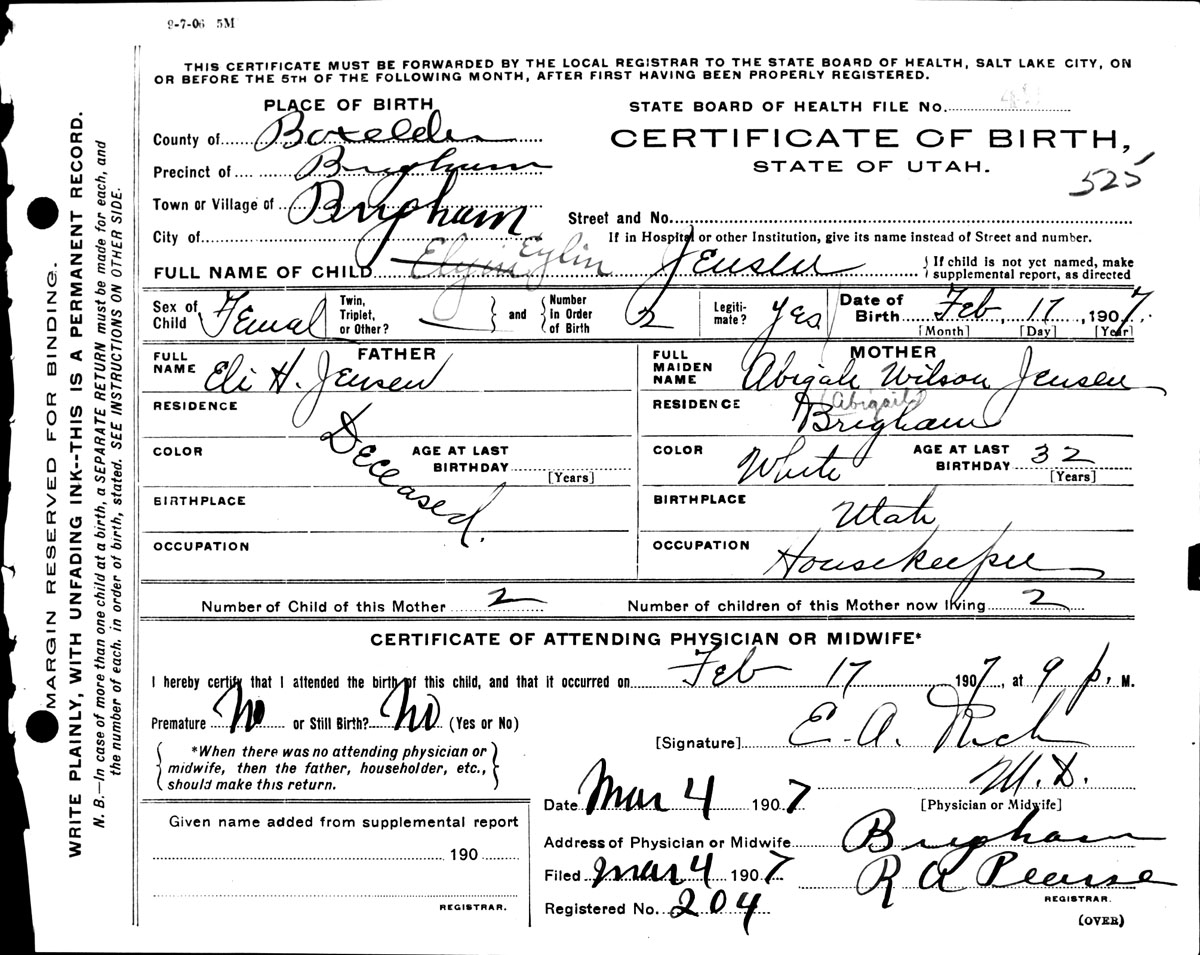 9-7-06 5M
THIS CERTIFICATE MUST BE FORWARDED BY THE LOCAL REGISTRAR TO THE STATE BOARD OF HEALTH, SALT LAKE CITY, ON
OR BEFORE THE 5TH OF THE FOLLOWING MONTH, AFTER FIRST HAVING BEEN PROPERLY REGISTERED.
PLACE OF BIRTH
STATE BOARD OF HEALTH FILE No.
County of Boxelder
CERTIFICATE OF BIRTH,
STATE OF UTAH.
525
Precinct of Brigham
Town or Village of Brigham
Street and No.
City of
If in Hospital or other Institution, give its name instead of Street and number.
FULL NAME OF CHILD Eylin Jensen
If child is not yet named, make
supplemental report, as directed
Sex of Child Femal
Twin, Triplet, or Other?
and Number In Order of Birth 2
Legiti-mate? Yes
Date of Birth Feb 17, 1907.
[Month] [Day] [Year]
FATHER
FULL NAME Eli H. Jensen
RESIDENCE
COLOR
AGE AT LAST BIRTHDAY
[Years]
BIRTHPLACE
OCCUPATION
Deceased.
MOTHER
FULL MAIDEN NAME Abigah Wilson Jensen
(Abigail)
RESIDENCE Brigham
COLOR White
AGE AT LAST BIRTHDAY 32
[Years]
BIRTHPLACE Utah
OCCUPATION Housekeeper
Number of Child of this Mother 2
Number of children of this Mother now living 2
CERTIFICATE OF ATTENDING PHYSICIAN OR MIDWIFE*
I hereby certify that I attended the birth of this child, and that it occurred on Feb 17 1907, at 9 p. M.
Premature No or Still Birth? No (Yes or No)
*When there was no attending physician or
midwife, then the father, householder, etc.,
should make this return.
[Signature] E. A. Rich
M. D.
[Physician or Midwife]
Date Mar 4 1907
Given name added from supplemental report
190
REGISTRAR.
Address of Physician or Midwife Brigham
Filed Mar 4 1907
R A Pearse
REGISTRAR.
Registered No. 204
(OVER)
MARGIN RESERVED FOR BINDING.
WRITE PLAINLY, WITH UNFADING INK--THIS IS A PERMANENT RECORD.
N. B.—In case of more than one child at a birth, a SEPARATE RETURN must be made for each, and
the number of each, in order of birth, stated. SEE INSTRUCTIONS ON OTHER SIDE.